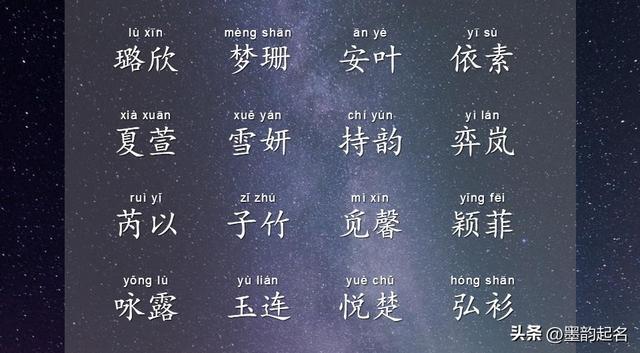 lù xīn mèng shān ān yè yī sù
璐欣 梦珊 安叶 依素
xià xuān xuě yán chí yùn yì lán
夏萱 雪妍 持韵 弈岚
ruì yǐ zǐ zhú mì xīn yǐng fēi
芮以 子竹 觅馨 颖菲
yǒng lù yù lián yuè chǔ hóng shān
咏露 玉连 悦楚 弘衫
头条 @墨韵起名